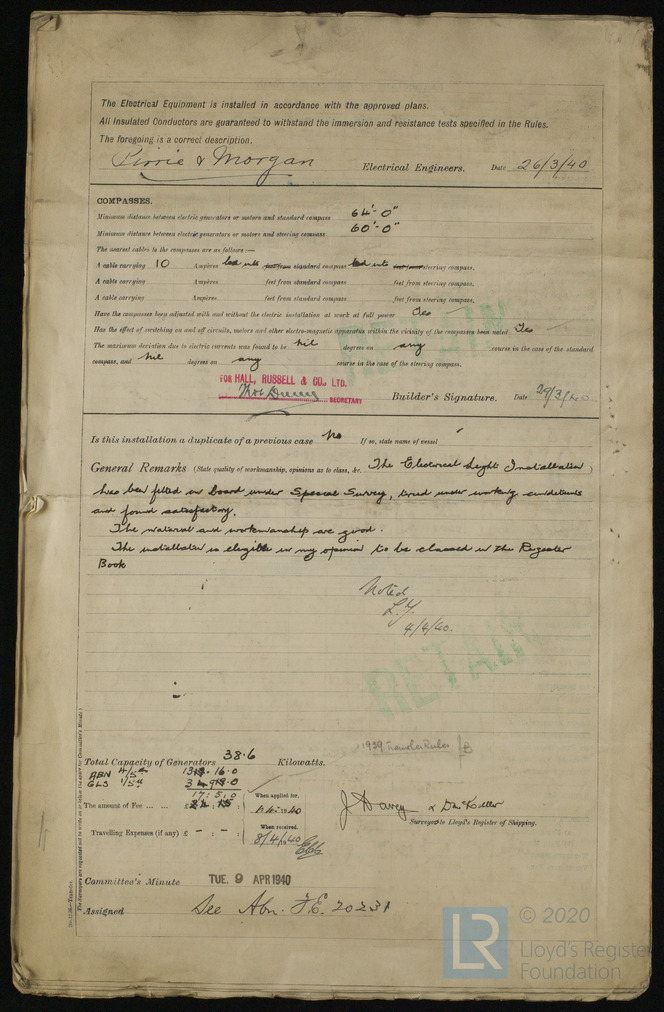 The Electrical Equipment is installed in accordance with the approved plans.
All Insulated Conductors are guaranteed to withstand the immersion and resistance tests specified in the Rules.
The foregoing is a correct description.
Pirrie & Morgan Electrical Engineers. Date 26/3/40
COMPASSES.
Minimum distance between electric generators or motors and standard compass 64'-0"
Minimum distance between electric generators or motors and steering compass 60'-0"
The nearest cables to the compasses are as follows:—
A cable carrying 10 Ampères led into feet from standard compass led into feet from steering compass.
A cable carrying Ampères feet from standard compass feet from steering compass.
A cable carrying Ampères feet from standard compass feet from steering compass.
Have the compasses been adjusted with and without the electric installation at work at full power Yes
Has the effect of switching on and off circuits, motors and other electro-magnetic apparatus within the vicinity of the compasses been noted Yes
The maximum deviation due to electric currents was found to be nil degrees on any course in the case of the standard
compass, and nil degrees on any course in the case of the steering compass.
FOR HALL, RUSSELL & CO., LTD.
SECRETARY Builder's Signature. Date 29/3/40
Is this installation a duplicate of a previous case No If so, state name of vessel
General Remarks (State quality of workmanship, opinions as to class, &c. The Electrical Light Installation)
has been fitted on board under Special Survey, tried under working conditions
and found satisfactory.
The material and workmanship are good.
The installation is eligible in my opinion to be classed in the Register
Book
Noted
L.Y.
4/4/40.
RETAIN
RETAIN
1939 Transfer Rules
Total Capacity of Generators 38.6 Kilowatts.
ABN 4/5th 13 . 16 . 0
GLS 1/5th 3 . 9 . 0
17 : 5 . 0
The amount of Fee ... ... £ When applied for,
Travelling Expenses (if any) £ - : - : When received,
8/4/40
J Davey & D McKellar
Surveyors to Lloyd's Register of Shipping.
Committee's Minute TUE. 9 APR 1940
Assigned See Abn. F.E. 20231
The Surveyors are requested not to write on or below the space for Committee's Minute.
© 2020
LR
Lloyd's Register
Foundation